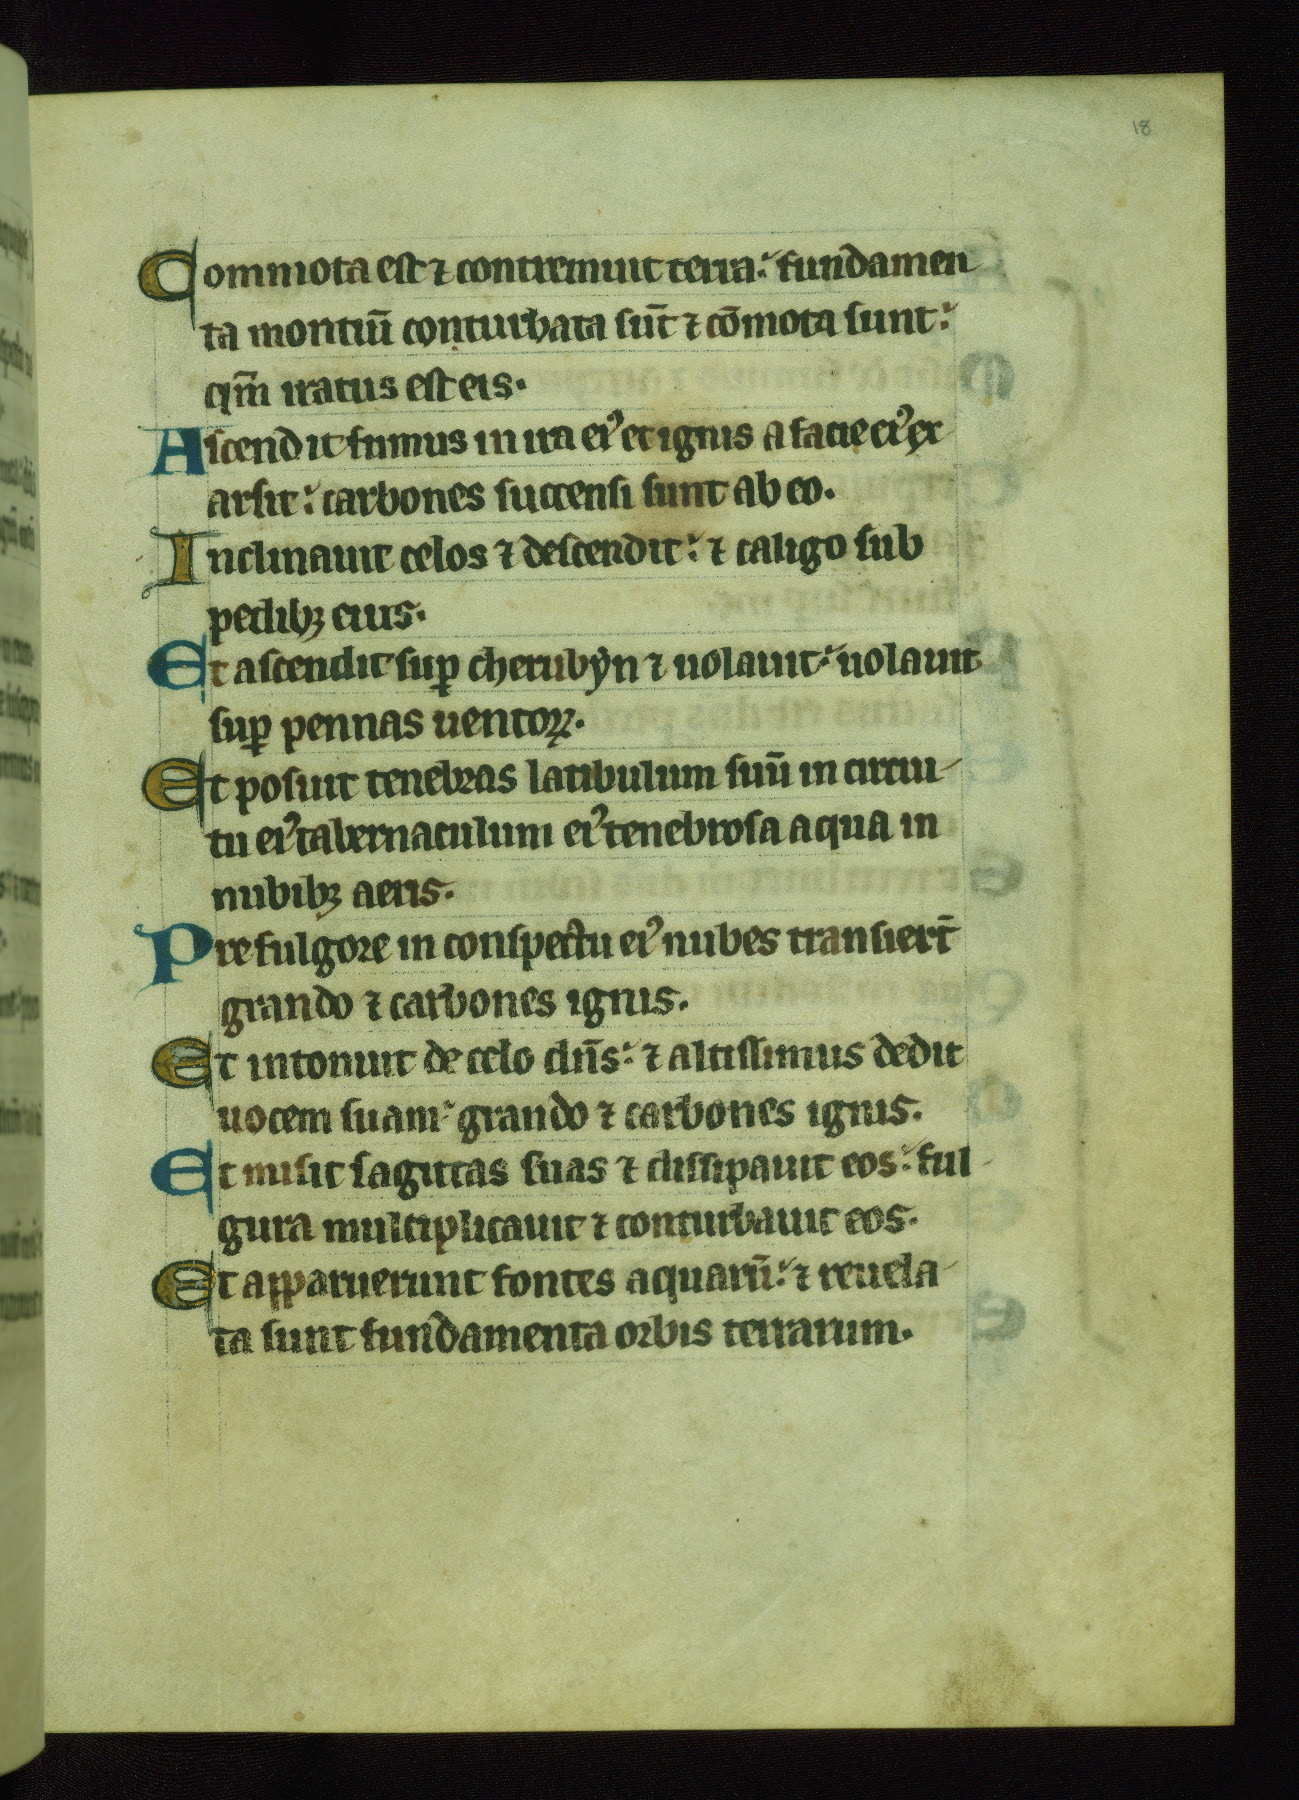 18
Commota est ⁊ contremuit terra: fundamen
ta montiū conturbata sūt ⁊ cōmota sunt:
qm̄ iratus est eis.
Ascendit fumus in ira eiꝰ et ignis a facie eiꝰ ex
arsit: carbones succensi sunt ab eo.
Inclinauit celos ⁊ descendit: ⁊ caligo sub
pedibꝫ eius.
Et ascendit suꝑ cherubẏn ⁊ uolauit: uolauit
suꝑ pennas uentoꝝ.
Et posuit tenebras latibulum suū in circui-
tu eiꝰ tabernaculum eiꝰ tenebrosa aqua in
nubibꝫ aeris.
Pre fulgore in conspectu eiꝰ nubes transierт̄
grando ⁊ carbones ignis.
Et intonuit de celo dn̄s: ⁊ altissimus dedit
uocem suam: grando ⁊ carbones ignis.
Et misit sagittas suas ⁊ dissipauit eos: ful-
gura multiplicauit ⁊ conturbauit eos.
Et apparuerunt fontes aquarū: ⁊ reuela-
ta sunt fundamenta orbis terrarum.